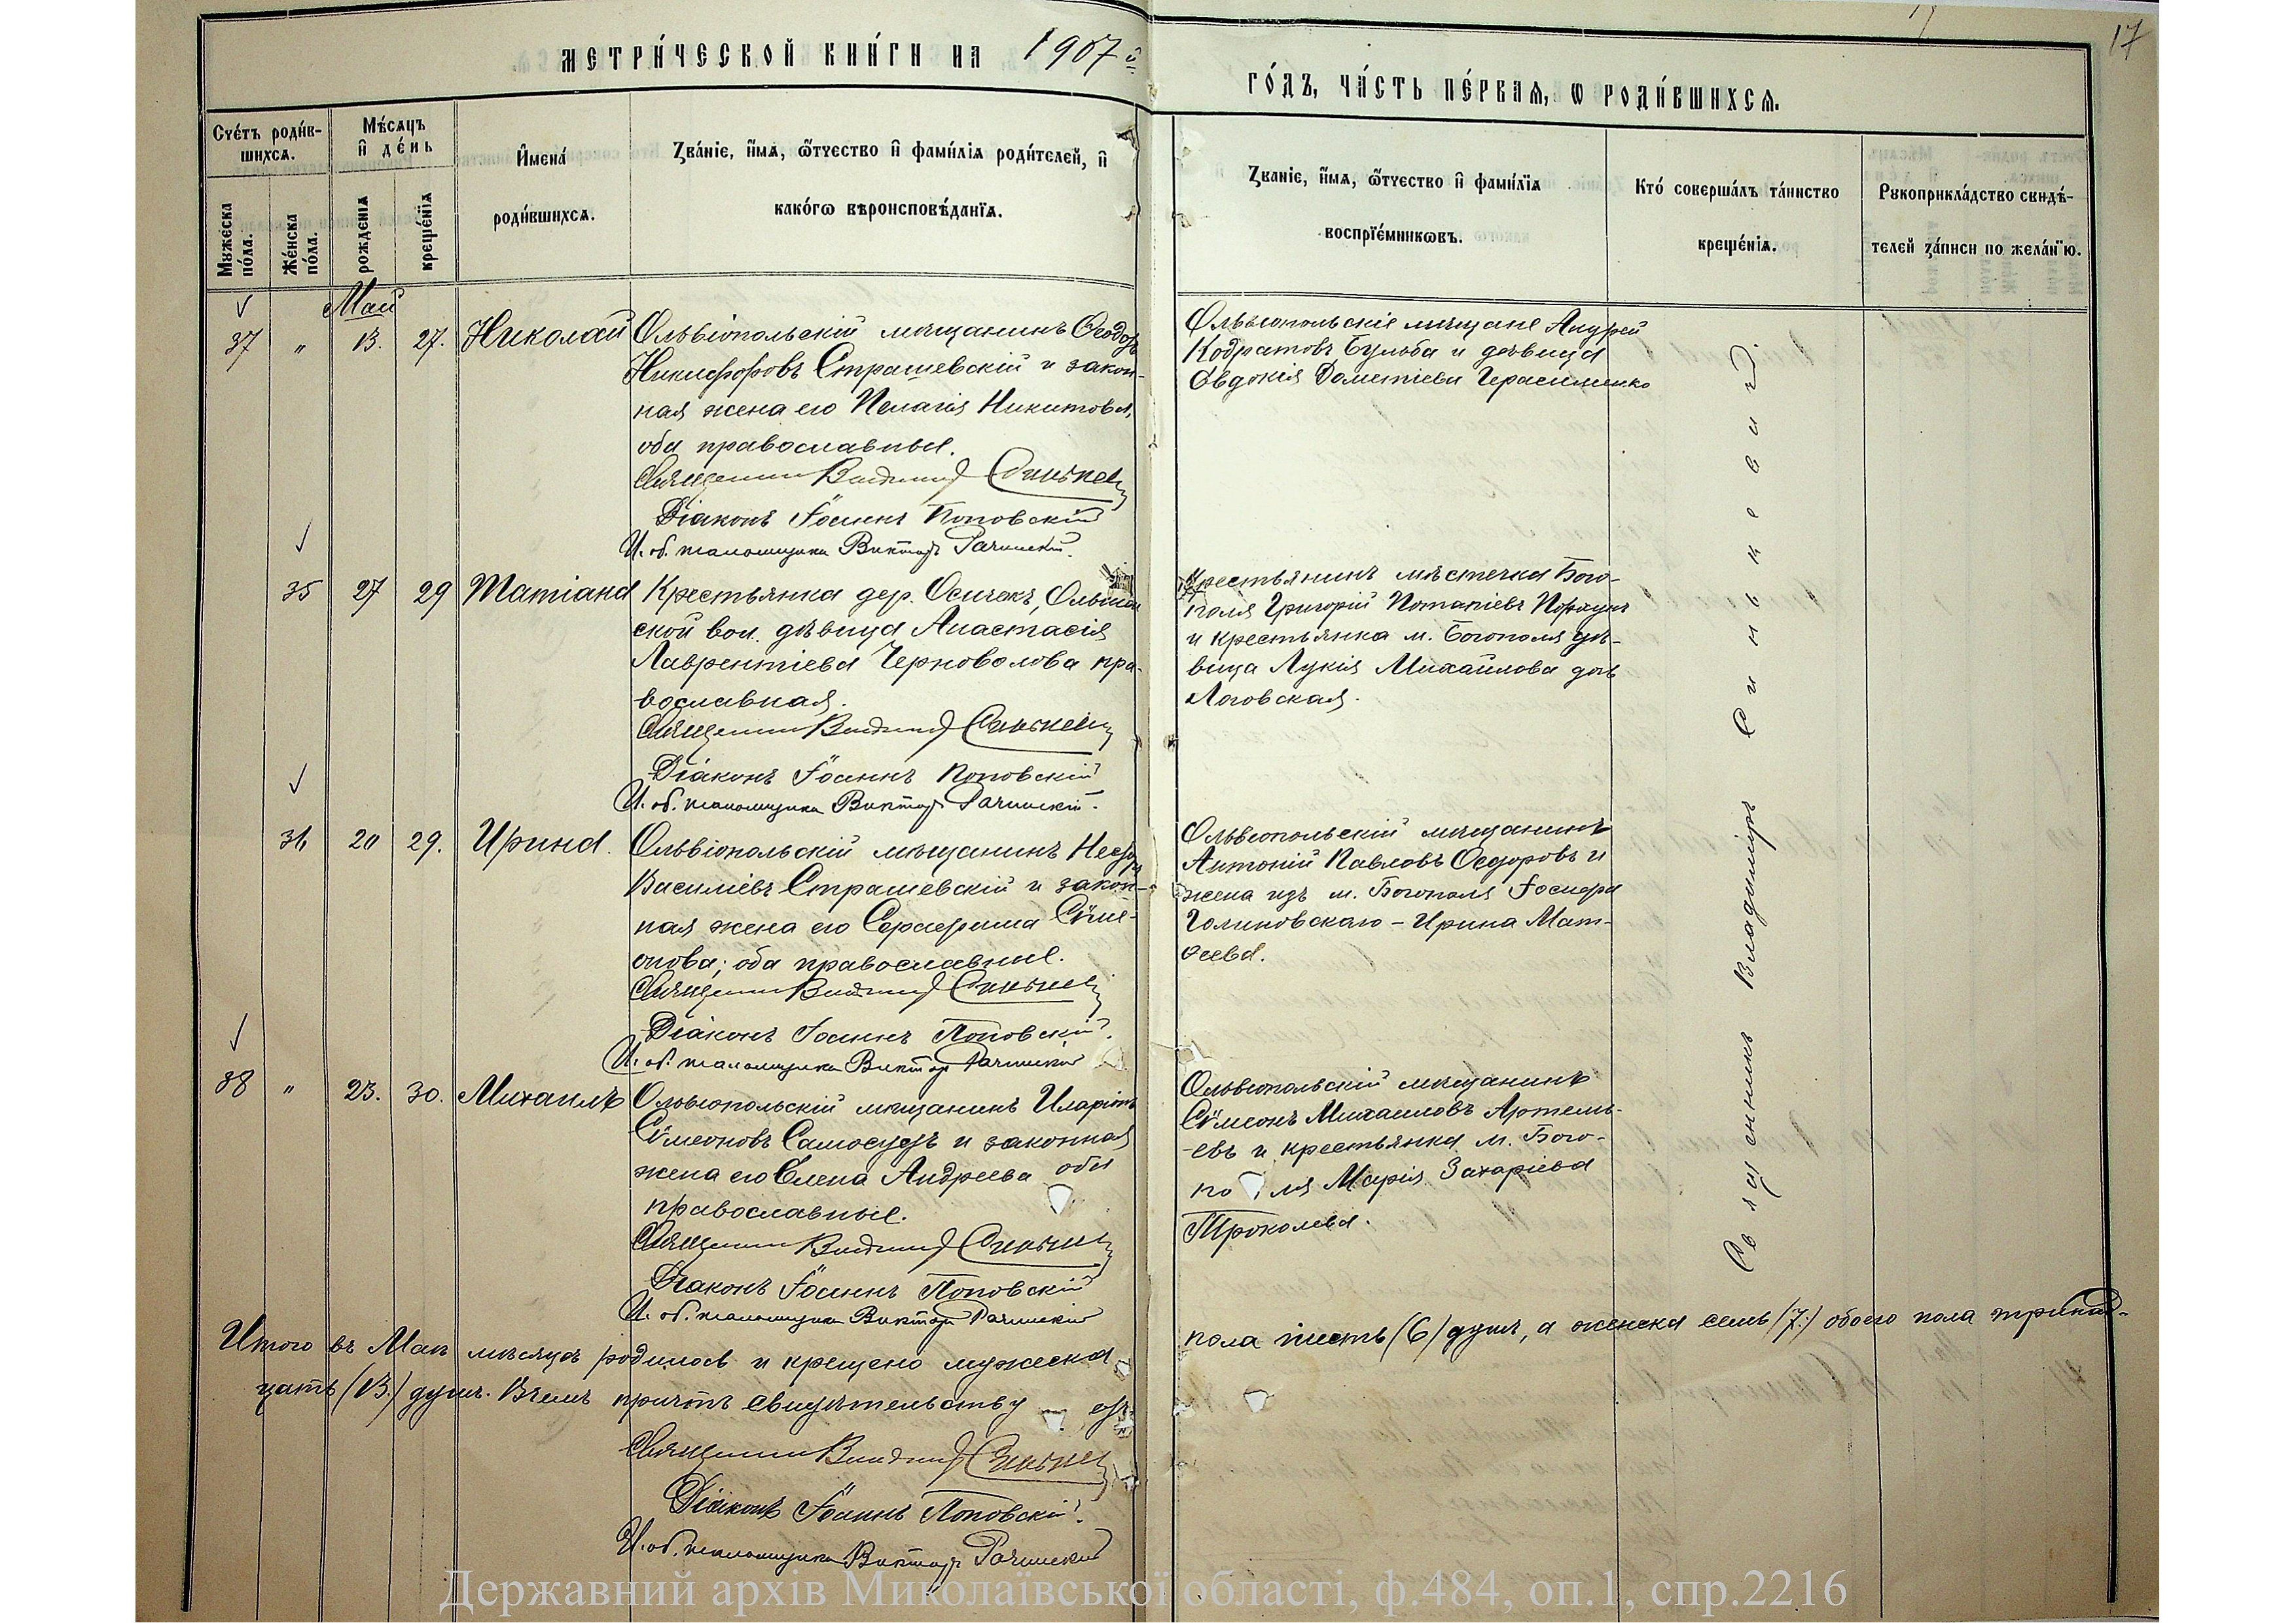 17
МЕТРИ́ЧЕСКОЙ КНИ́ГИ НА 1907 й
ГО́ДЪ, ЧА́СТЬ ПЕ́РВАЯ, Ѡ РОДИ́ВШИХСЯ.
Сче́тъ роди́в-
шихся.
Мѣ́сяцъ
и҆ де́нь
И҆мена́
роди́вшихся.
Зва́нїе, и҆́мя, ѻ҆́тчество и҆ фами́лїя роди́телей, и҆
како́гѡ вѣроисповѣ́данїя.
Зва́нїе, и҆́мя, ѻ҆́тчество и҆ фами́лїя
воспрїе́мникѡвъ.
Кто́ соверша́лъ та́инство
креще́нїя.
Рукоприкла́дство свидѣ́-
телей за́писи по жела́нїю.
Мужеска
по́ла.
Же́нска
по́ла.
рожденїя
креще́нїя
Май
37 " 13. 27. Николай
Ольвіопольскій мѣщанинъ Ѳеодоръ
Никифоровъ Страшевскій и закон-
ная жена его Пелагія Никитова,
оба православные.
Священникъ Владимиръ Синькевичъ
Діаконъ Іоаннъ Поповскій
И. об. псаломщика Викторъ Рачинскій.
Ольвіопольскіе мѣщане Андрей
Кодратовъ Бульба и дѣвица
Евдокія Дометіева Герасименко
35 27 29 Татіана
Крестьянка дер. Осичекъ,
ской вол. дѣвица Анастасія
Лаврентіева Черноволова пра-
вославная.
Священникъ Владимиръ Синькевичъ
Діаконъ Іоаннъ Поповскій
И. об. псаломщика Викторъ Рачинскій.
Крестьянинъ мѣстечка Бого-
поля Григорій Потапіевъ
и крестьянка м. Богополя дѣ-
вица Лукія Михайлова
Логовская.
36 20 29. Ирина.
Ольвіопольскій мѣщанинъ
Василіевъ Страшевскій и закон-
ная жена его Серафима Сѵме-
онова; оба православные.
Священникъ Владимиръ Синькевичъ
Діаконъ Іоаннъ Поповскій.
И. об. псаломщика Викторъ Рачинскій
Ольвіопольскій мѣщанинъ
Антоній Павловъ Ѳедоровъ и
жена изъ м. Богополя Іосифа
Голиновскаго - Ирина Мат-
ѳеева.
38 " 23. 30. Михаилъ
Ольвіопольскій мѣщанинъ Иларіонъ
Сѵмеоновъ Самосудъ и законная
жена его Елена Андреева оба
православные.
Священникъ Владимиръ Синькевичъ
Діаконъ Іоаннъ Поповскій
И. об. псаломщика Викторъ Рачинскій
Ольвіопольскій мѣщанинъ
Сѵмеонъ Михаиловъ Артемь-
евъ и крестьянка м. Бого-
поля Марія Захаріева
Священникъ Владимиръ Синькевичъ
Итого въ Маѣ мѣсяцѣ родилось и крещено мужеска
пола шесть (6) душъ, а женска семь (7) обоего пола тринад-
цать (13.) душъ. Въ чемъ причтъ свидѣтельству
Священникъ Владимиръ Синькевичъ
Діаконъ Іоаннъ Поповскій.
И. об. псаломщика Викторъ Рачинскій
Державний архів Миколаївської області, ф.484, оп.1, спр.2216